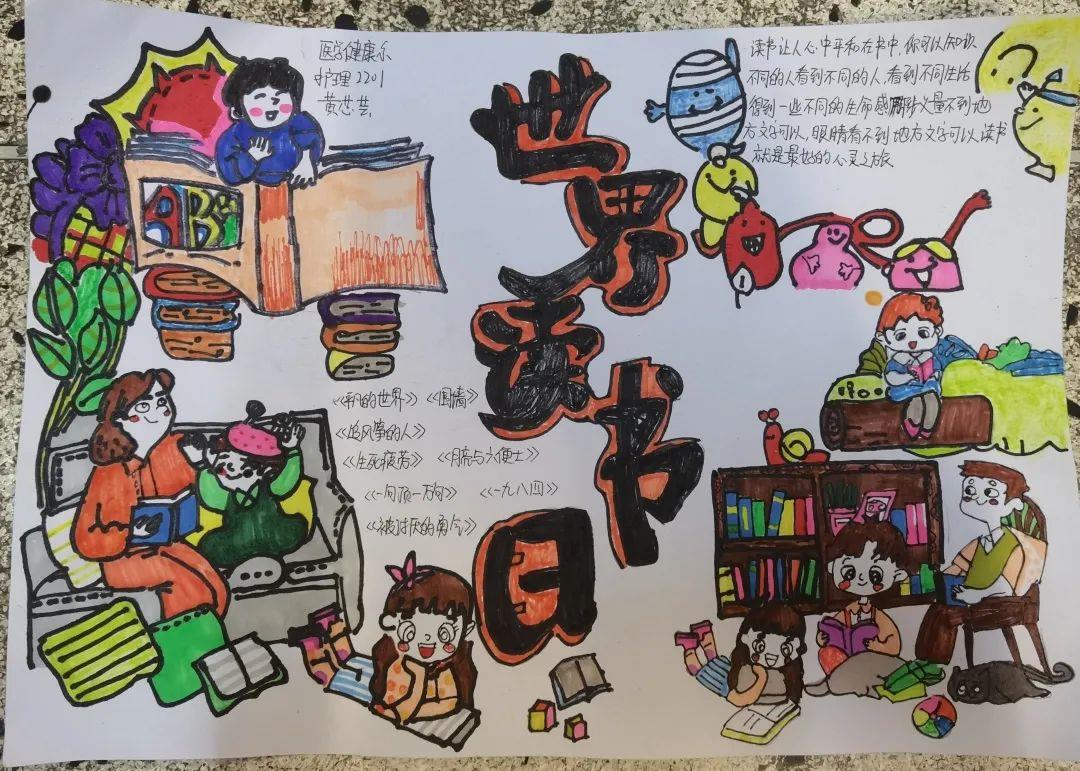 医学健康系
护理2201
黄芸
世界读书日
读书让人心中平和在书中,你可以知识
不同的人看到不同的人,看到不同生活
得到一些不同的生命感量不到地
方文字可以,眼睛看不到地方文字可以读书
就是最好的心灵之旅
ABC
《平凡的世界》 《围墙》
《追风筝的人》
《生死疲劳》 《月亮与六便士》
《一句顶一万句》 《一九八四》
《被讨厌的勇气》